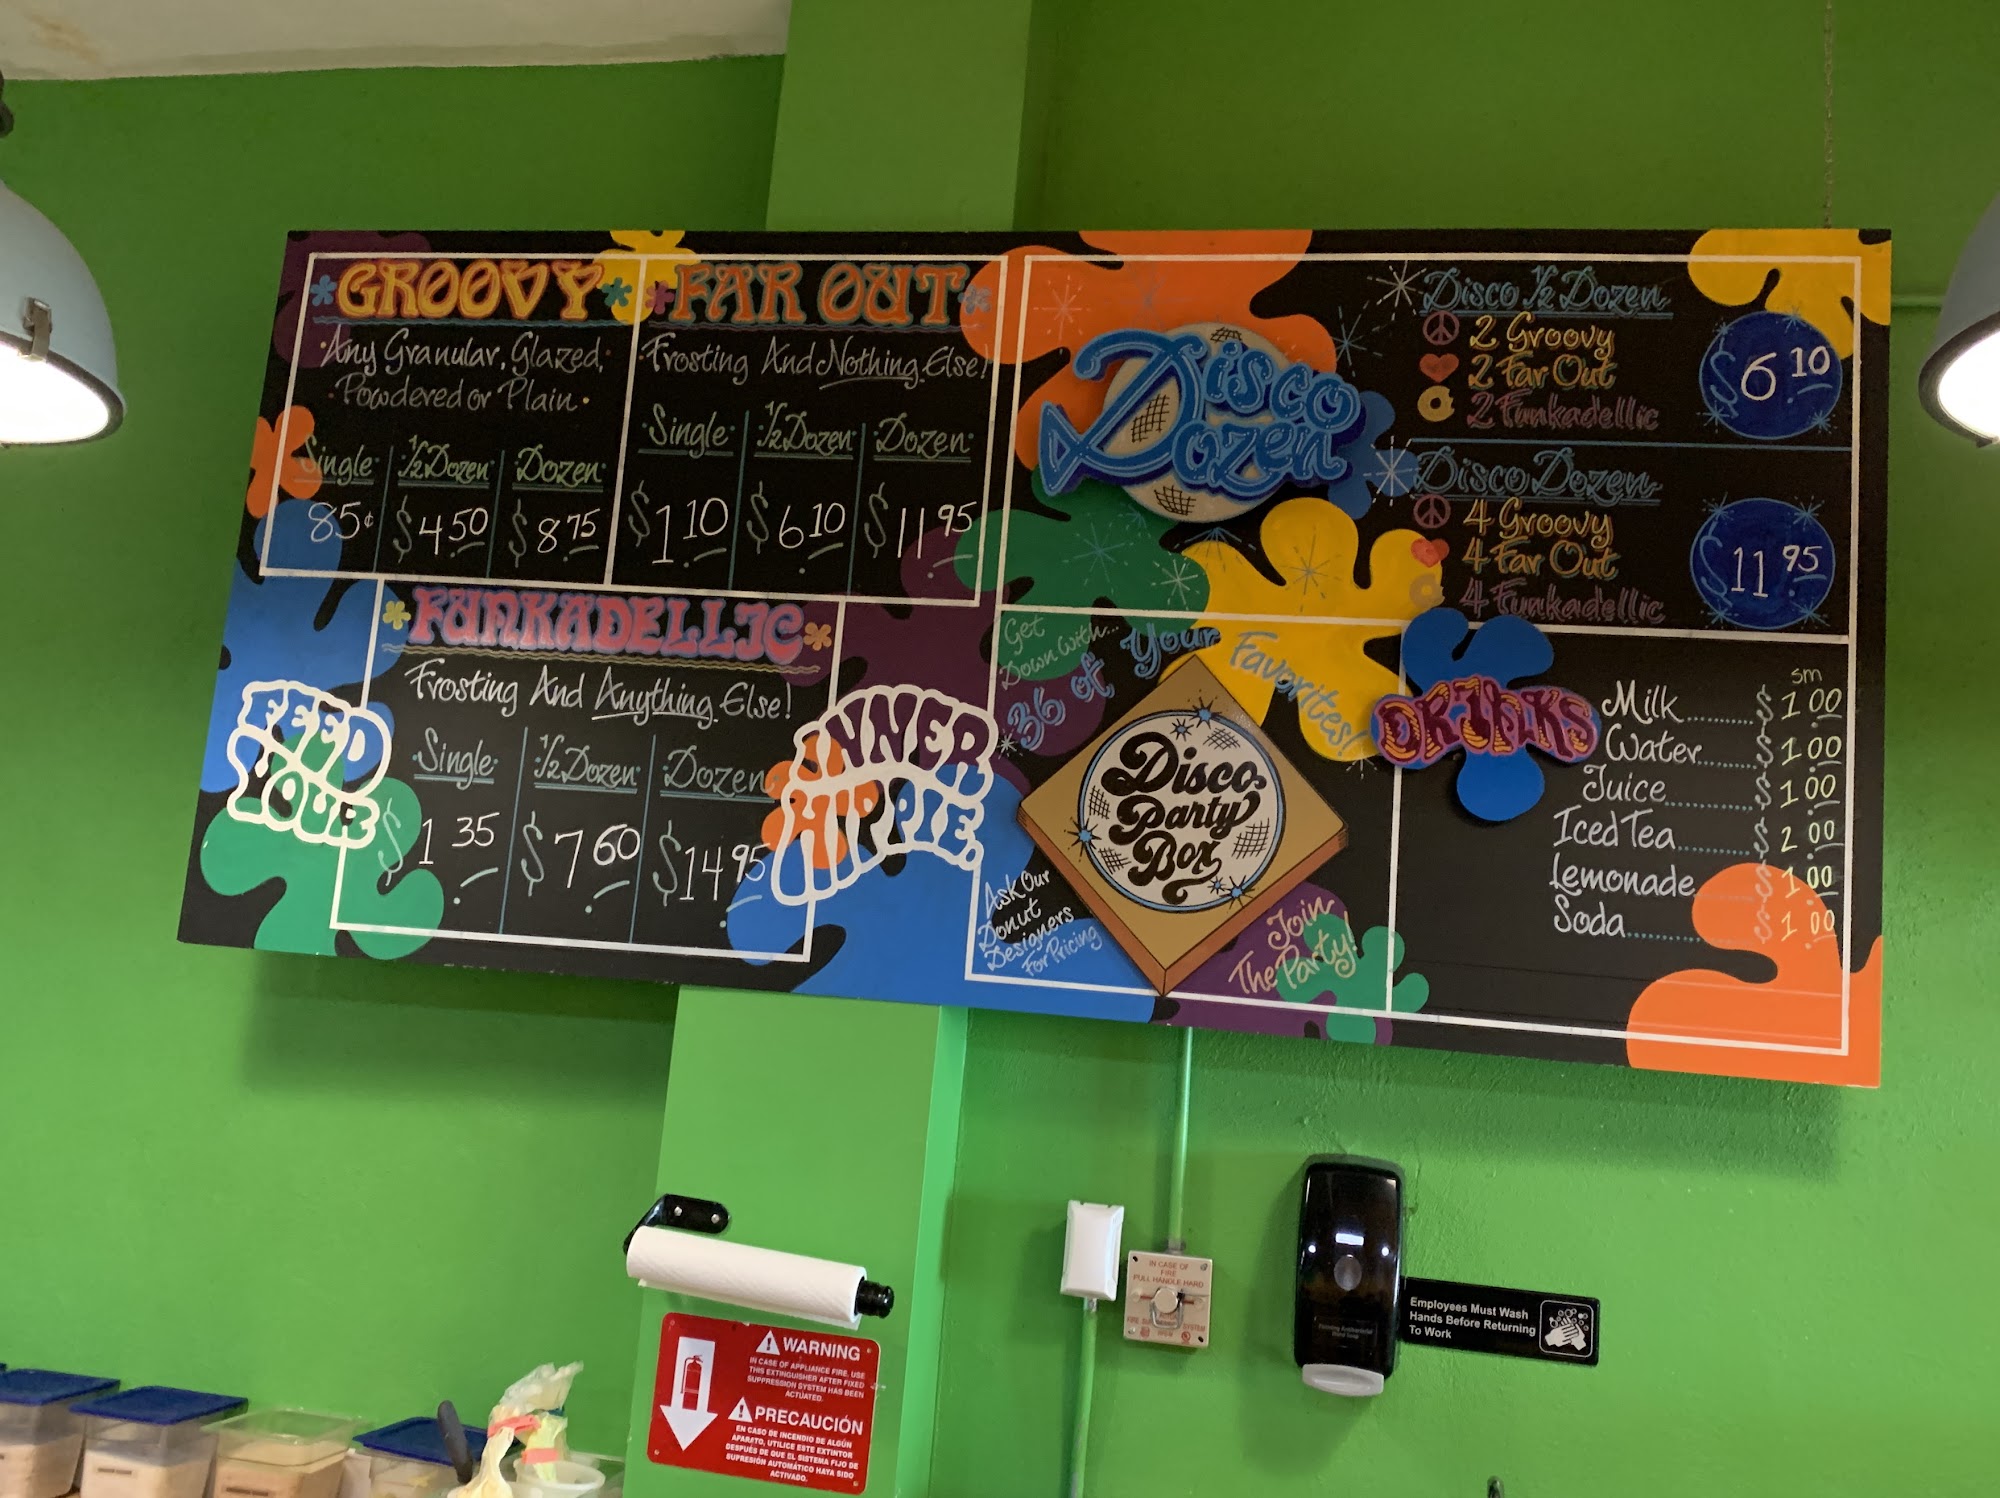 GROOVY
Any Granular, Glazed,
Powdered or Plain
Single
85¢
1/2 Dozen
$4.50
Dozen
$8.75
FAR OUT
Frosting And Nothing Else!
Single
$1.10
1/2 Dozen
$6.10
Dozen
$11.95
FUNKADELLIC
Frosting And Anything Else!
Single
$1.35
1/2 Dozen
$7.60
Dozen
$14.95
FEED
YOUR
INNER
HIPPIE.
Disco
Dozen
Disco 1/2 Dozen
2 Groovy
2 Far Out
2 Funkadellic
$6.10
Disco Dozen
4 Groovy
4 Far Out
4 Funkadellic
$11.95
Get
Down With...
36 of Your Favorites!
Disco
Party
Box
Ask Our
Donut
Designers
For Pricing
Join
The Party!
DRINKS
sm
Milk 1.00
Water 1.00
Juice 1.00
Iced Tea 2.00
Lemonade 1.00
Soda 1.00
IN CASE OF
FIRE
PULL HANDLE HARD
Employees Must Wash
Hands Before Returning
To Work
WARNING
IN CASE OF APPLIANCE FIRE, USE
THIS EXTINGUISHER AFTER FIXED
SUPPRESSION SYSTEM HAS BEEN
ACTUATED.
PRECAUCIÓN
EN CASO DE INCENDIO DE ALGÚN
APARATO, UTILICE ESTE EXTINTOR
DESPUÉS DE QUE EL SISTEMA FIJO DE
SUPRESIÓN AUTOMÁTICO HAYA SIDO
ACTIVADO.